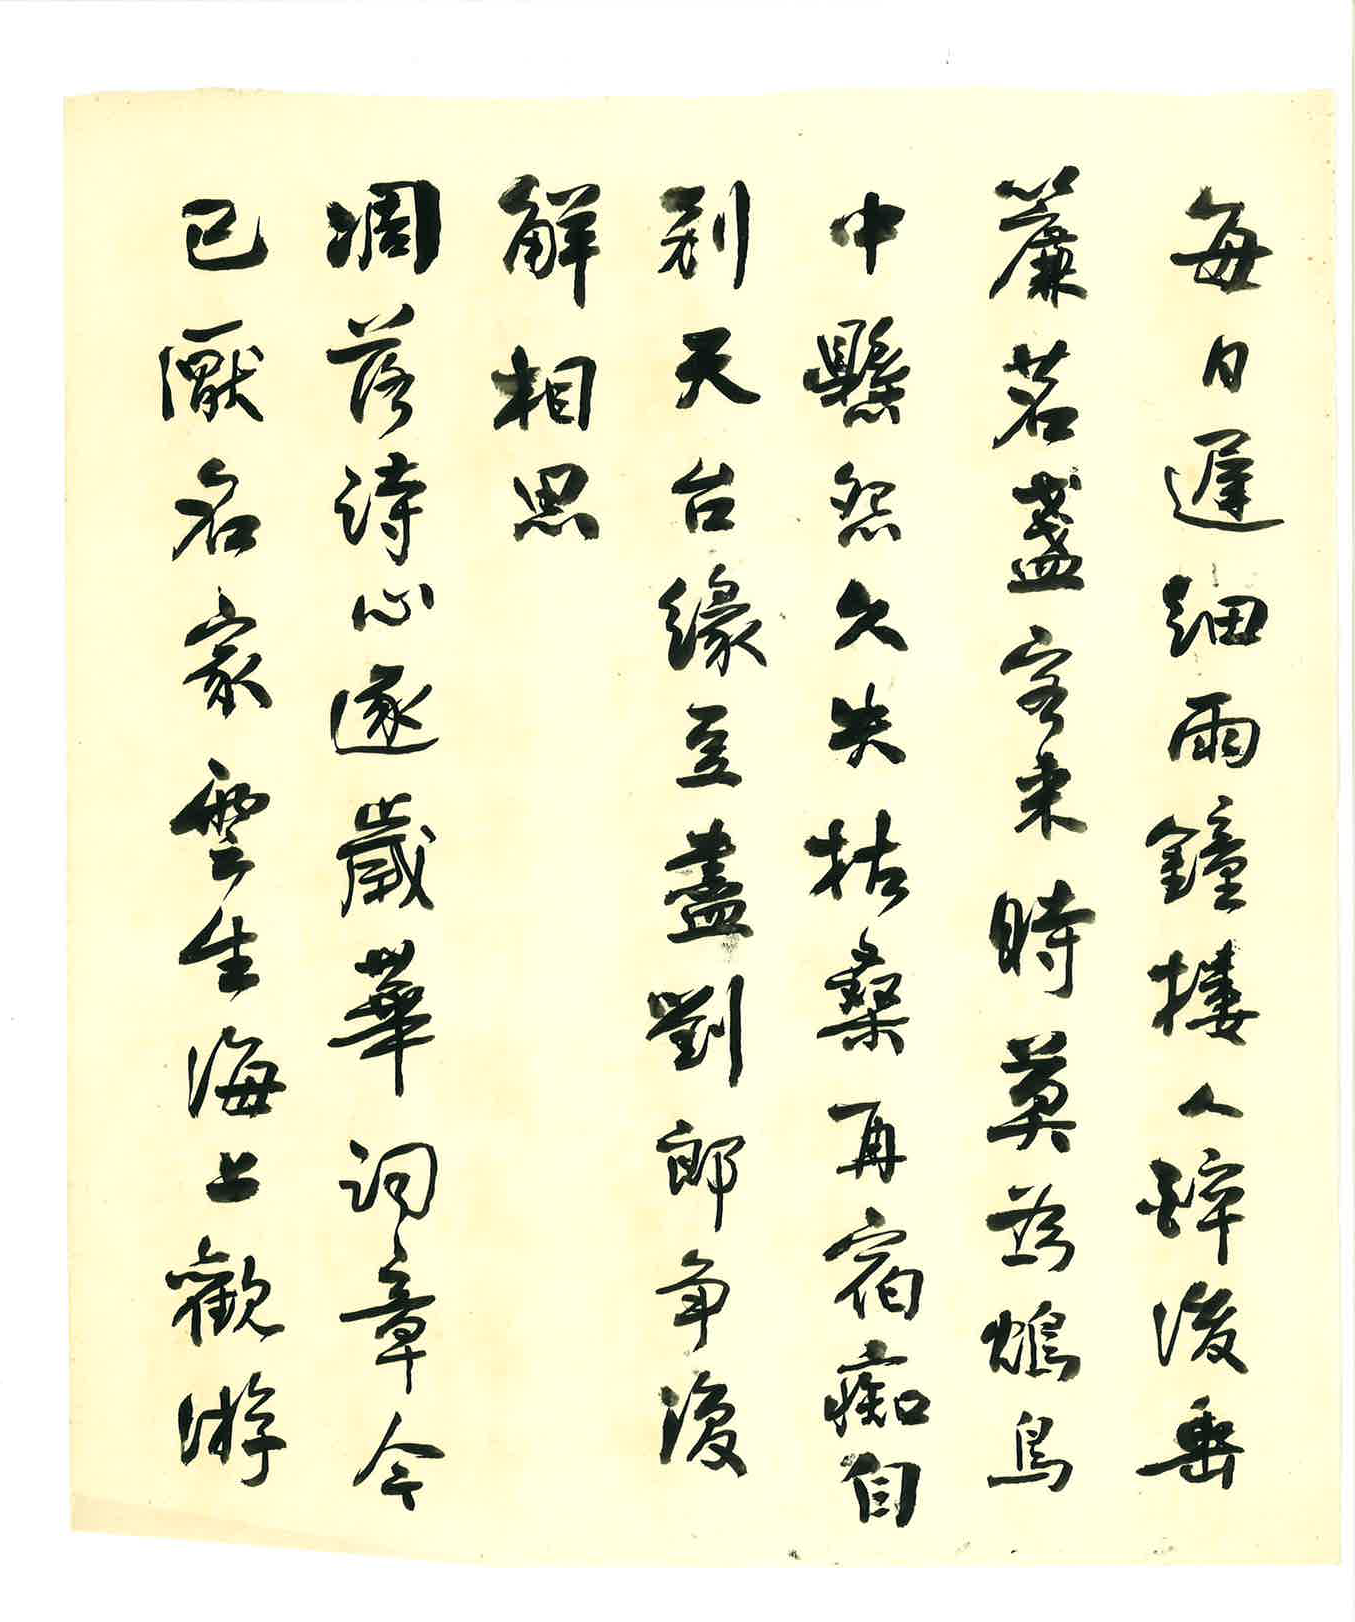 每日遲細雨鐘樓人醉後垂
簾茗盞客來時莫為鳥
中懸怨久失枯桑再宿痴自
別天台緣豈盡劉郎爭復
解相思
凋落詩心逐歲華詞章今
已厭名家雲生海上觀游